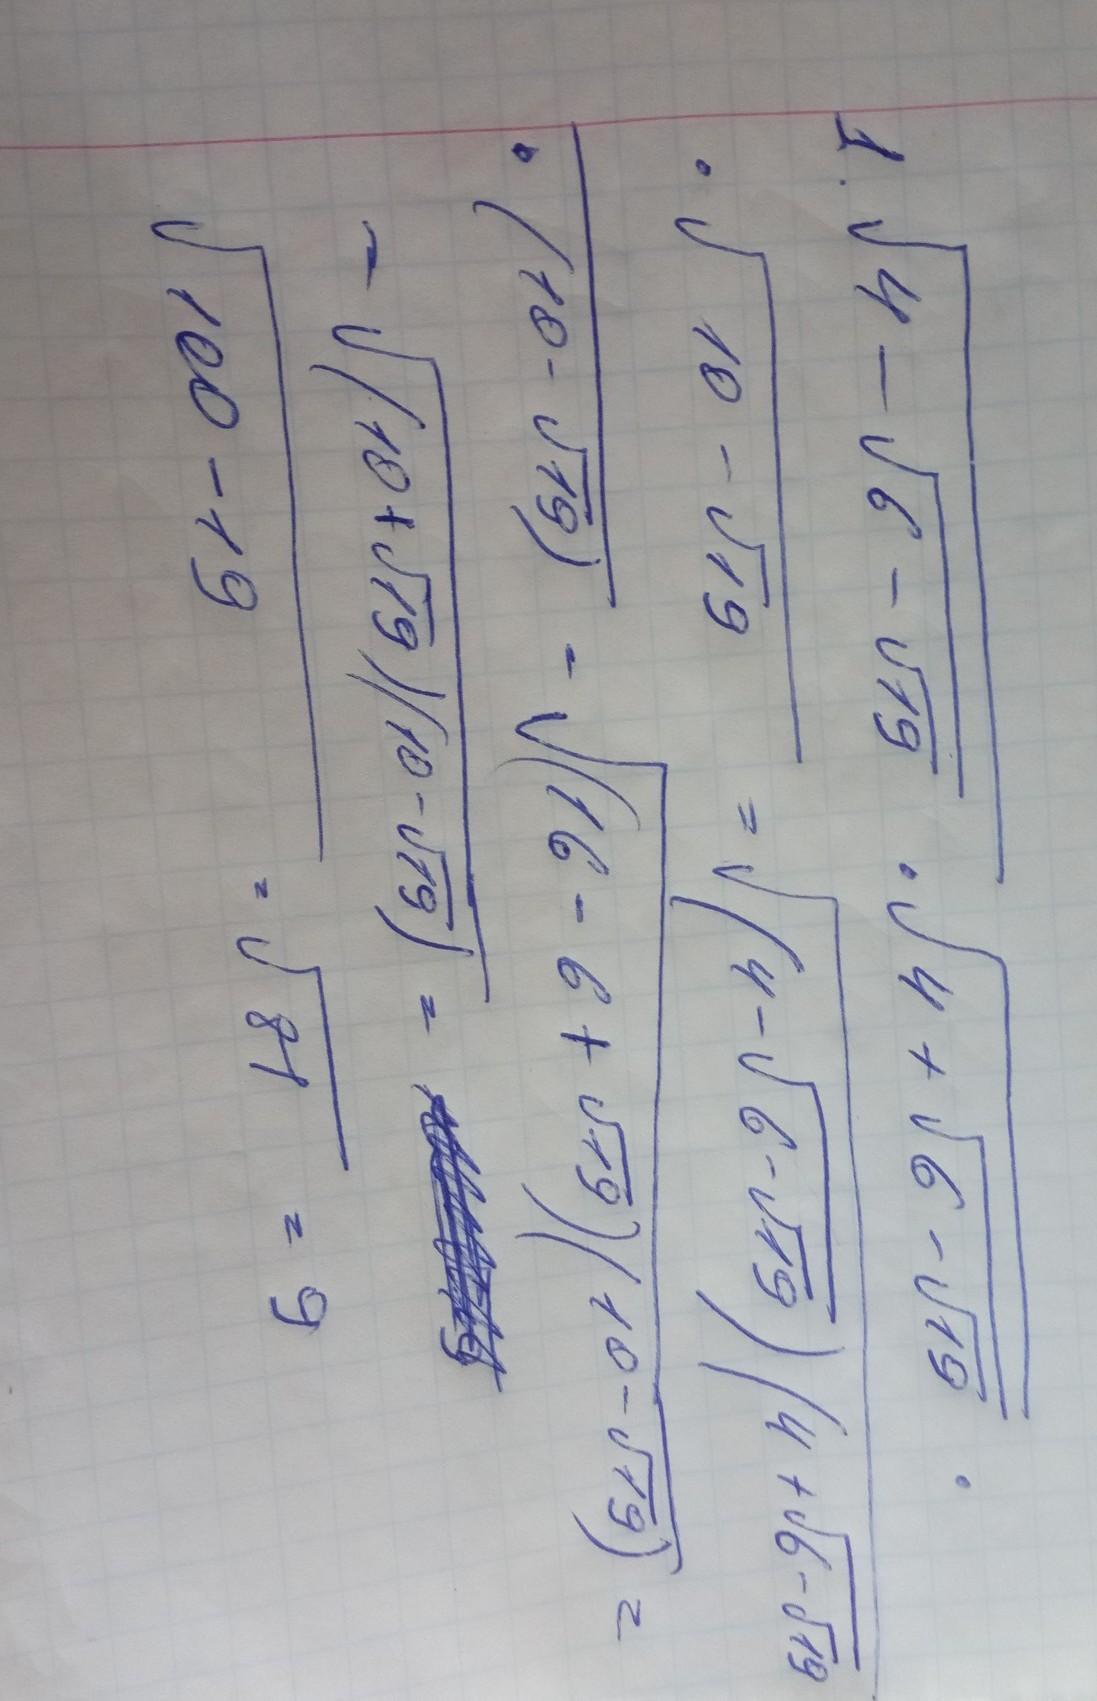 1. √(4 - √(6 - √19)) · √(4 + √(6 - √19)) ·
· √(10 - √19) = √((4 - √(6 - √19))(4 + √(6 - √19)) ·
· (10 - √19)) = √((16 - 6 + √19)(10 - √19)) =
= √((10 + √19)(10 - √19)) =
√(100 - 19) = √81 = 9